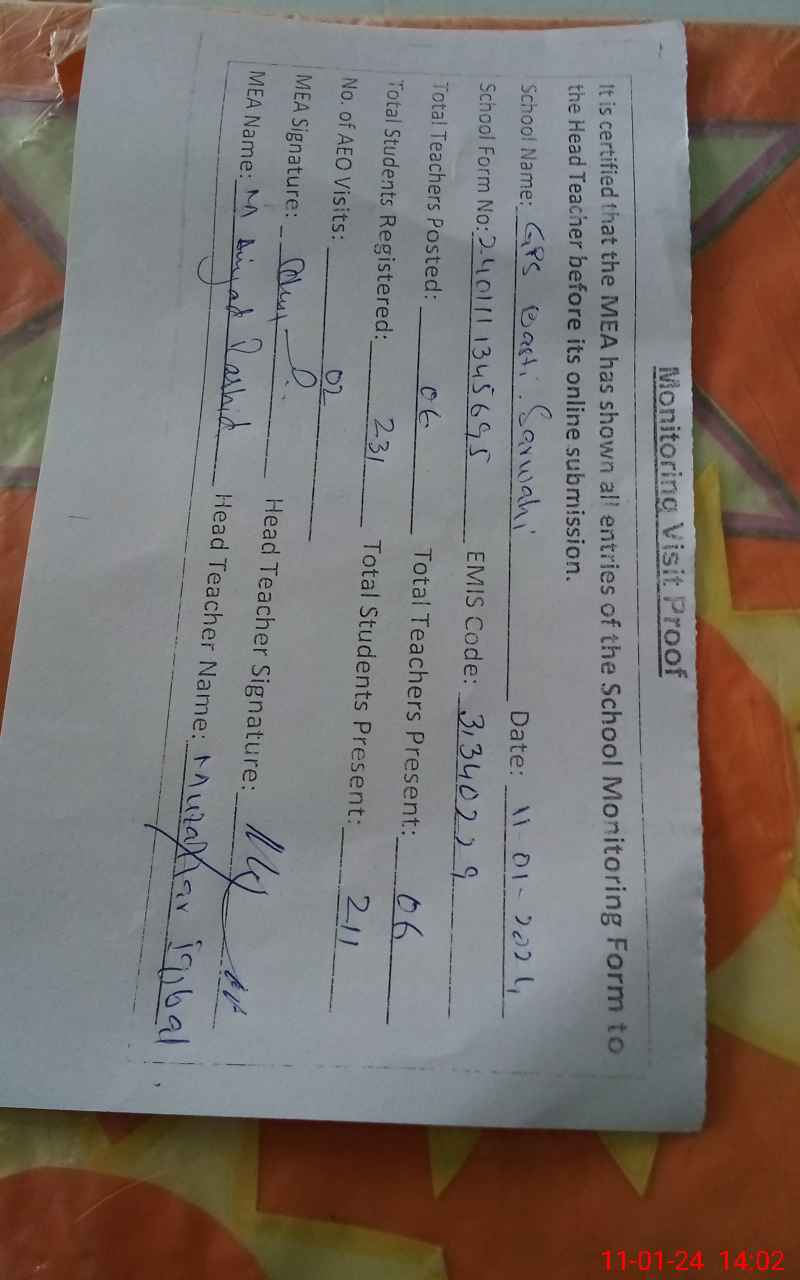 Monitoring Visit Proof
It is certified that the MEA has shown all entries of the School Monitoring Form to
the Head Teacher before its online submission.
School Name: GPS Basti Sarwahi Date: 11-01-2024
School Form No: 2401111345695 EMIS Code: 31340229
Total Teachers Posted: 06 Total Teachers Present: 06
Total Students Registered: 231 Total Students Present: 211
No. of AEO Visits: 02
MEA Signature: Head Teacher Signature:
MEA Name: M Rashid Head Teacher Name: Muzaffar iqbal
11-01-24 14:02